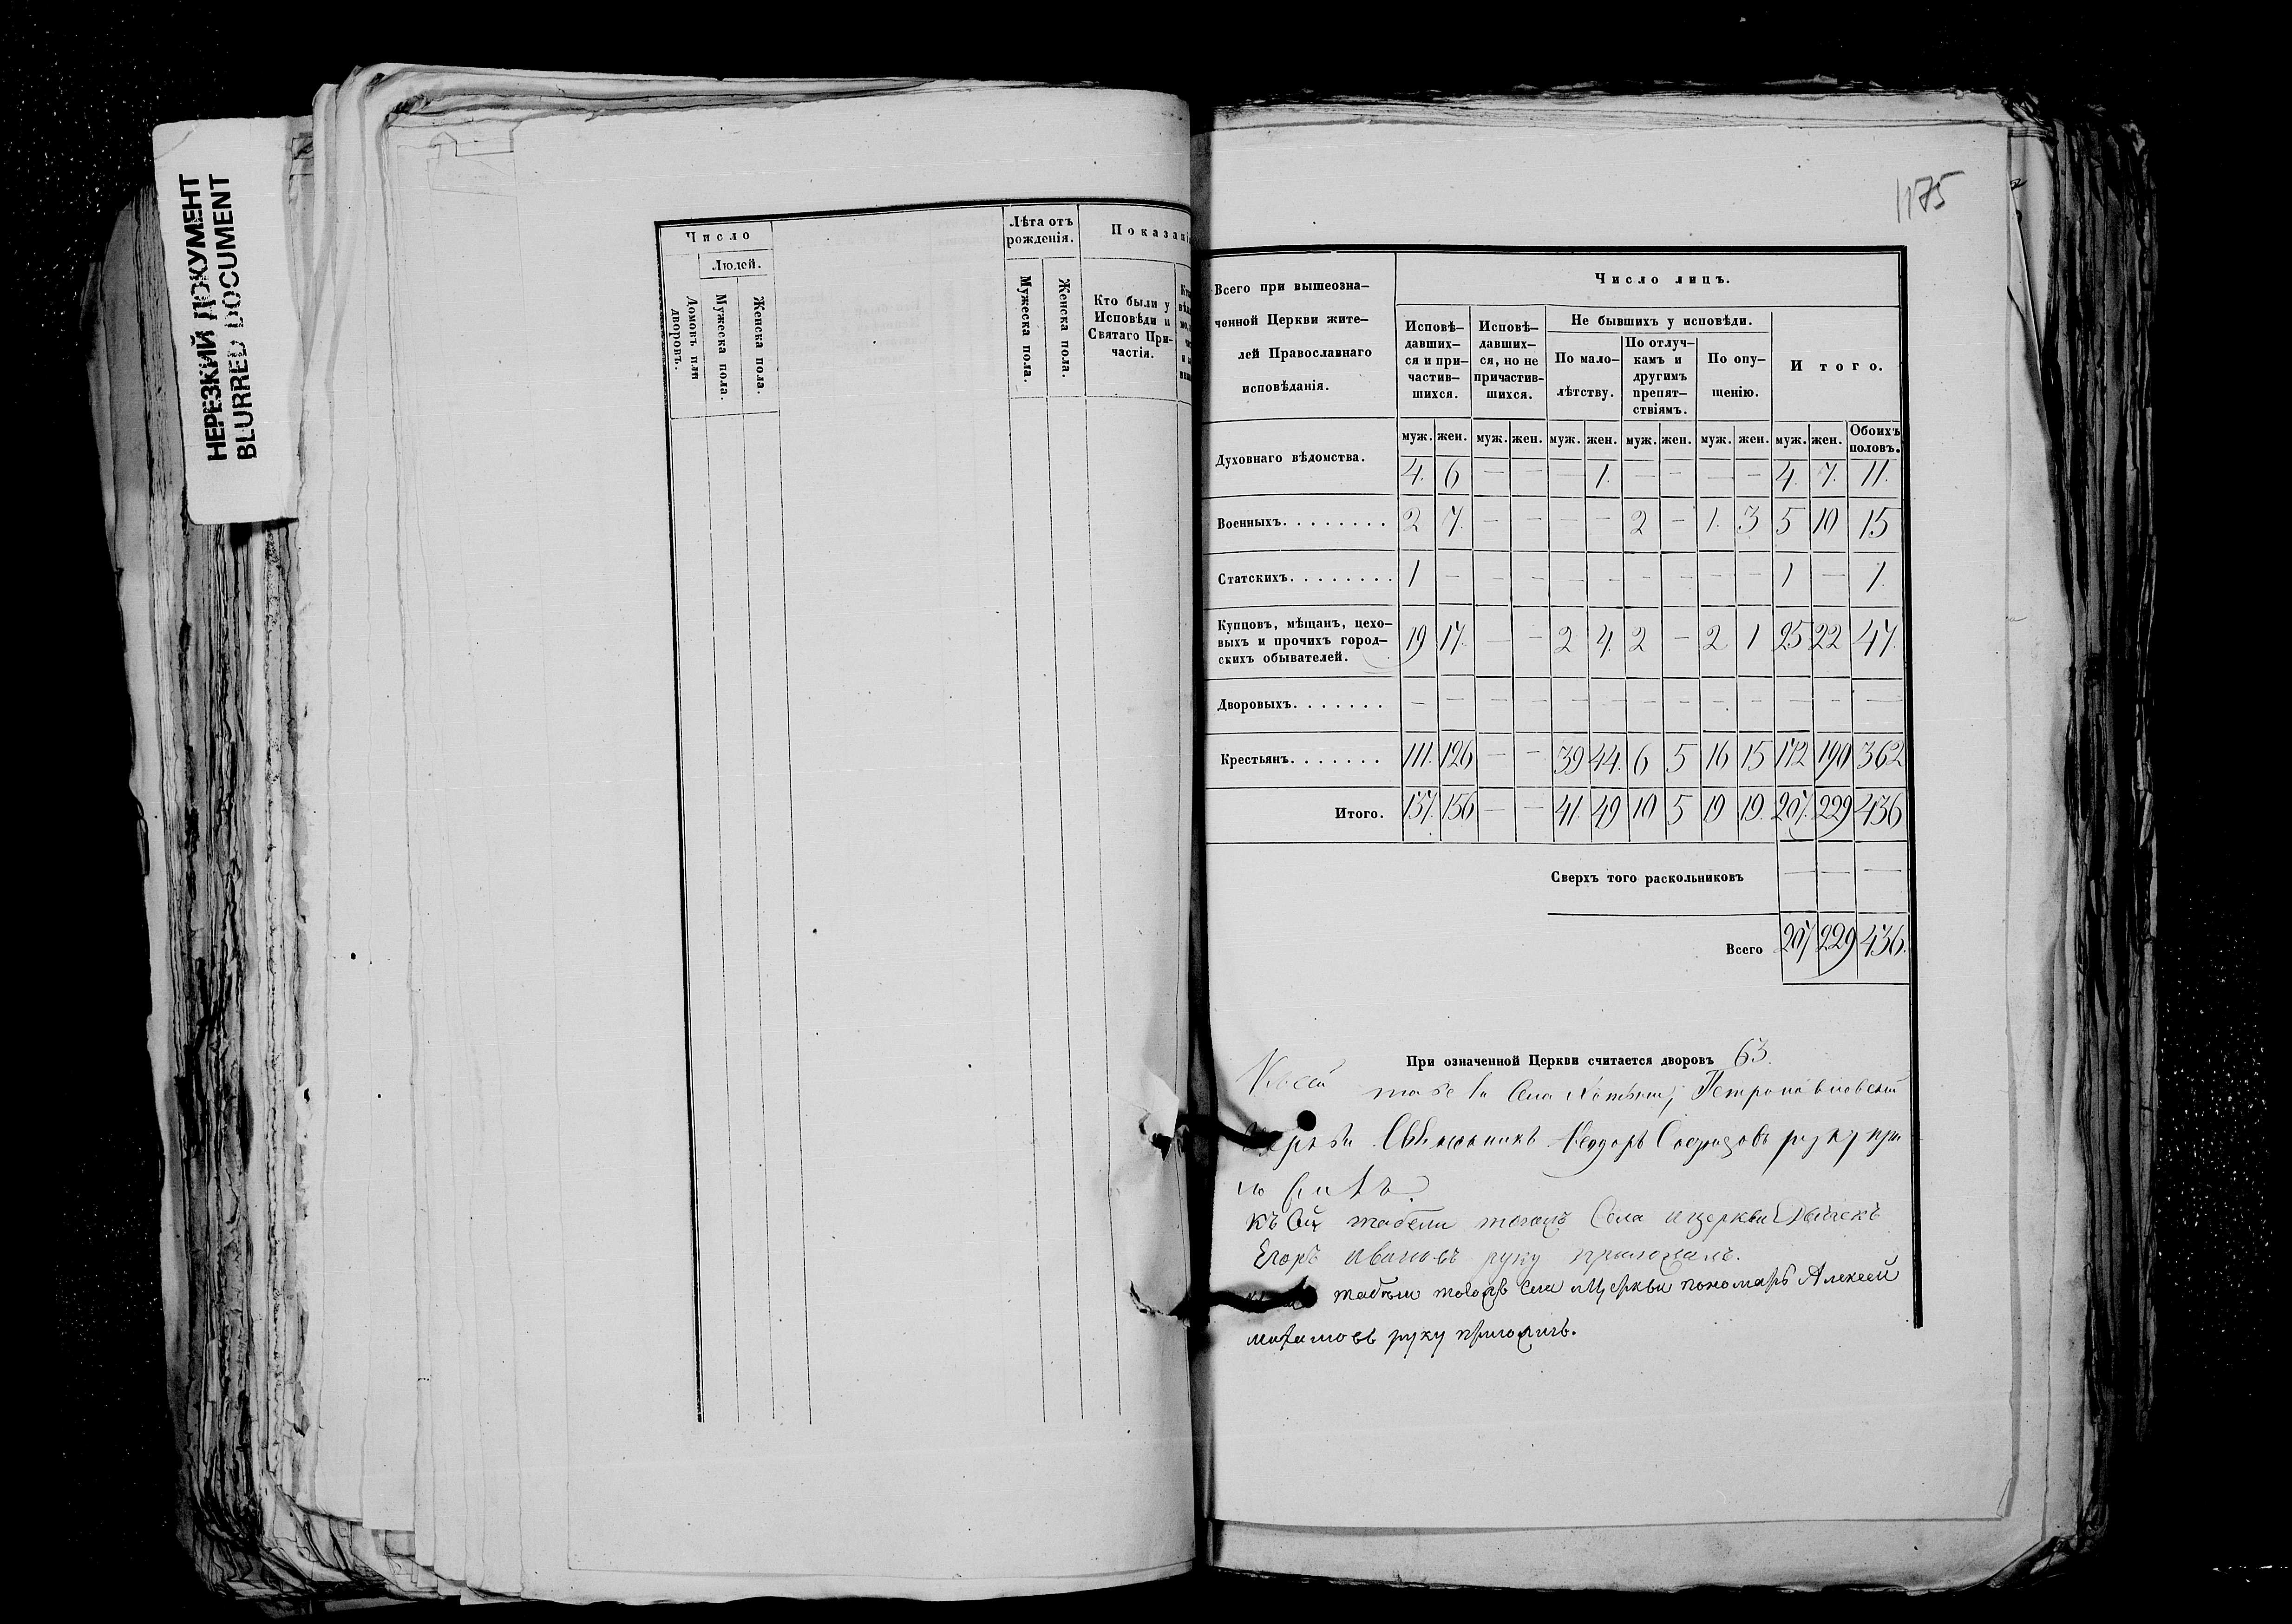 НЕРЕЗКИЙ ДОКУМЕНТ
BLURRED DOCUMENT
Число
Людей.
Домовъ или дворовъ.
Мужеска пола.
Женска пола.
Лѣта отъ рожденія.
Мужеска пола.
Женска пола.
Показані
Кто были у Исповѣди и Святаго Причастія.
1175
Всего при вышеозна-
ченной Церкви жите-
лей Православнаго
исповѣданія.
Число лицъ.
Исповѣ-давших-ся и при-частив-шихся.
Исповѣ-давших-ся, но не причастив-шихся.
Не бывшихъ у исповѣди.
По мало-лѣтству.
По отлуч-камъ и другимъ препят-ствіямъ.
По опу-щенію.
Итого.
муж. жен. муж. жен. муж. жен. муж. жен. муж. жен. муж. жен. Обоихъ половъ.
Духовнаго вѣдомства. 4. 6 — — — 1. — — — — 4. 7. 11.
Военныхъ. . . . . . . . 2 7. — — — — 2 — 1. 3 5 10 15
Статскихъ. . . . . . . . 1 — — — — — — — — — 1 — 1.
Купцовъ, мѣщанъ, цехо-
выхъ и прочихъ город-
скихъ обывателей. 19 17. — — 2 4. 2 — 2 1 25 22 47.
Дворовыхъ. . . . . . . — — — — — — — — — — — — —
Крестьянъ. . . . . . . 111. 126 — — 39 44. 6 5 16 15 172 190 362
Итого. 137. 156 — — 41. 49 10 5 19 19. 207. 229 436
Сверхъ того раскольниковъ — — —
Всего 207 229 436.
При означенной Церкви считается дворовъ 63.
Села Петропавловской
руку при
къ сей табели тогожъ Села и церкви Дьячекъ
Егоръ Ивановъ руку приложилъ.
табели тогожъ Села и Церкви пономарь Алексей
руку приложилъ.